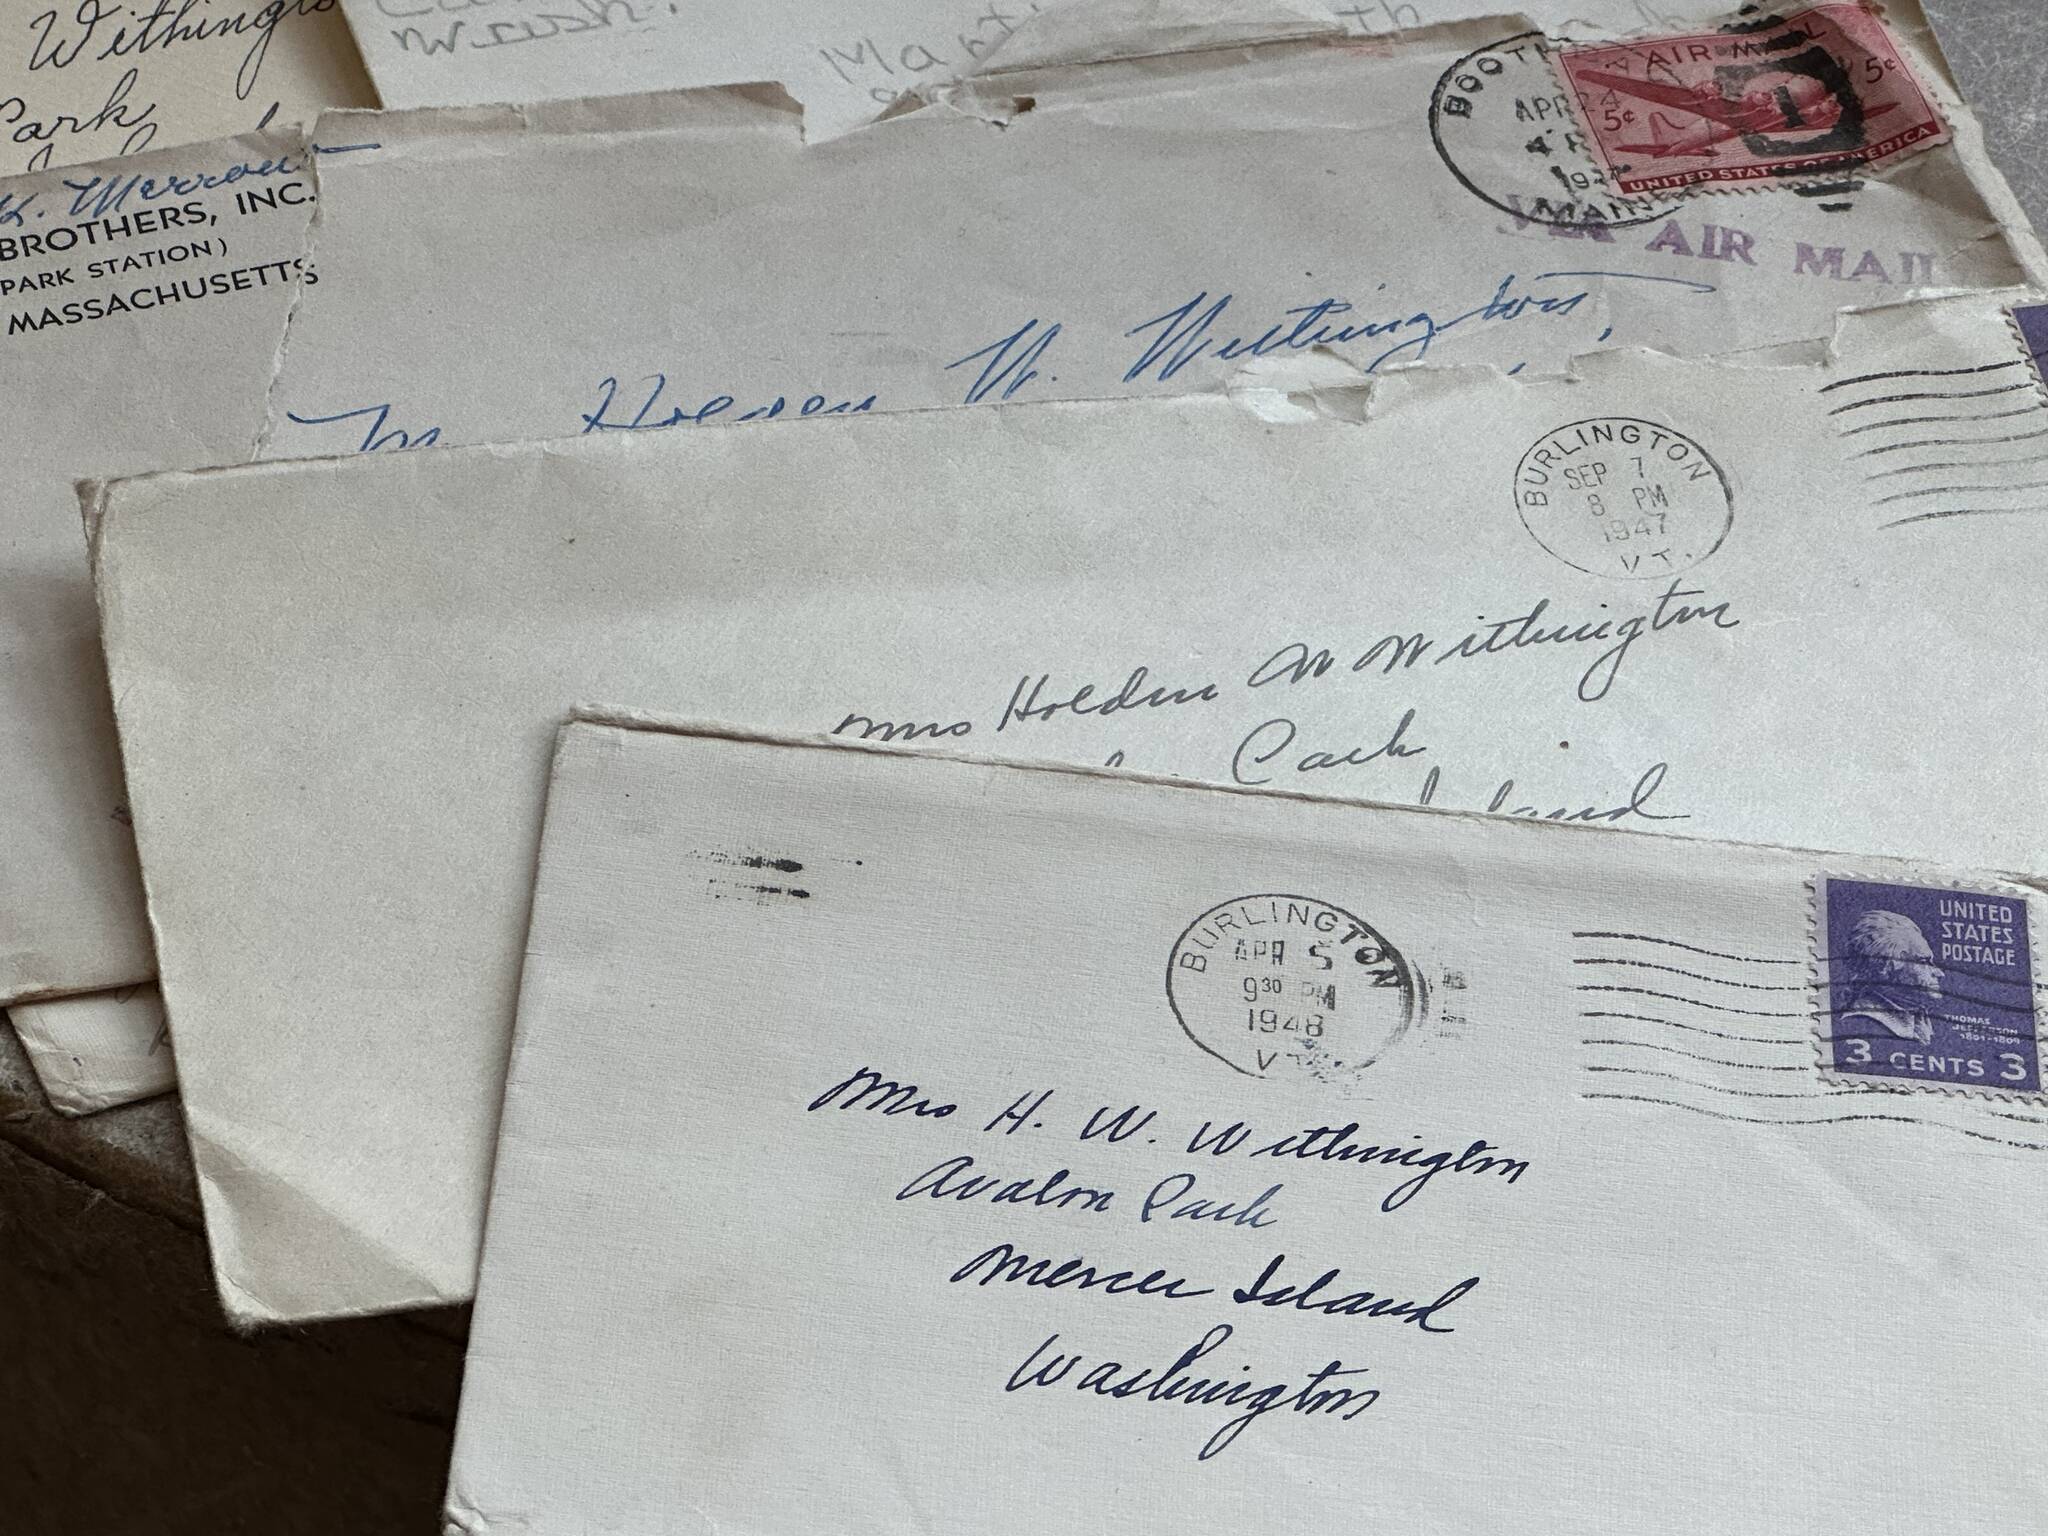 Withington
Park
Mart
K. Merrow
BROTHERS, INC.
(PARK STATION)
MASSACHUSETTS
BOOTH
APR 24
4 P
MAIN
AIR MAIL
5¢
5¢
UNITED STATES OF AMERICA
VIA AIR MAIL
Holden W. Withington,
BURLINGTON
SEP 7
8 PM
1947
VT.
Mrs Holden W Withington
Park
Island
BURLINGTON
APR 5
9 30 PM
1948
VT.
UNITED
STATES
POSTAGE
THOMAS
JEFFERSON
1801-1809
3 CENTS 3
Mrs H. W. Withington
Avalon Park
Mercer Island
Washington